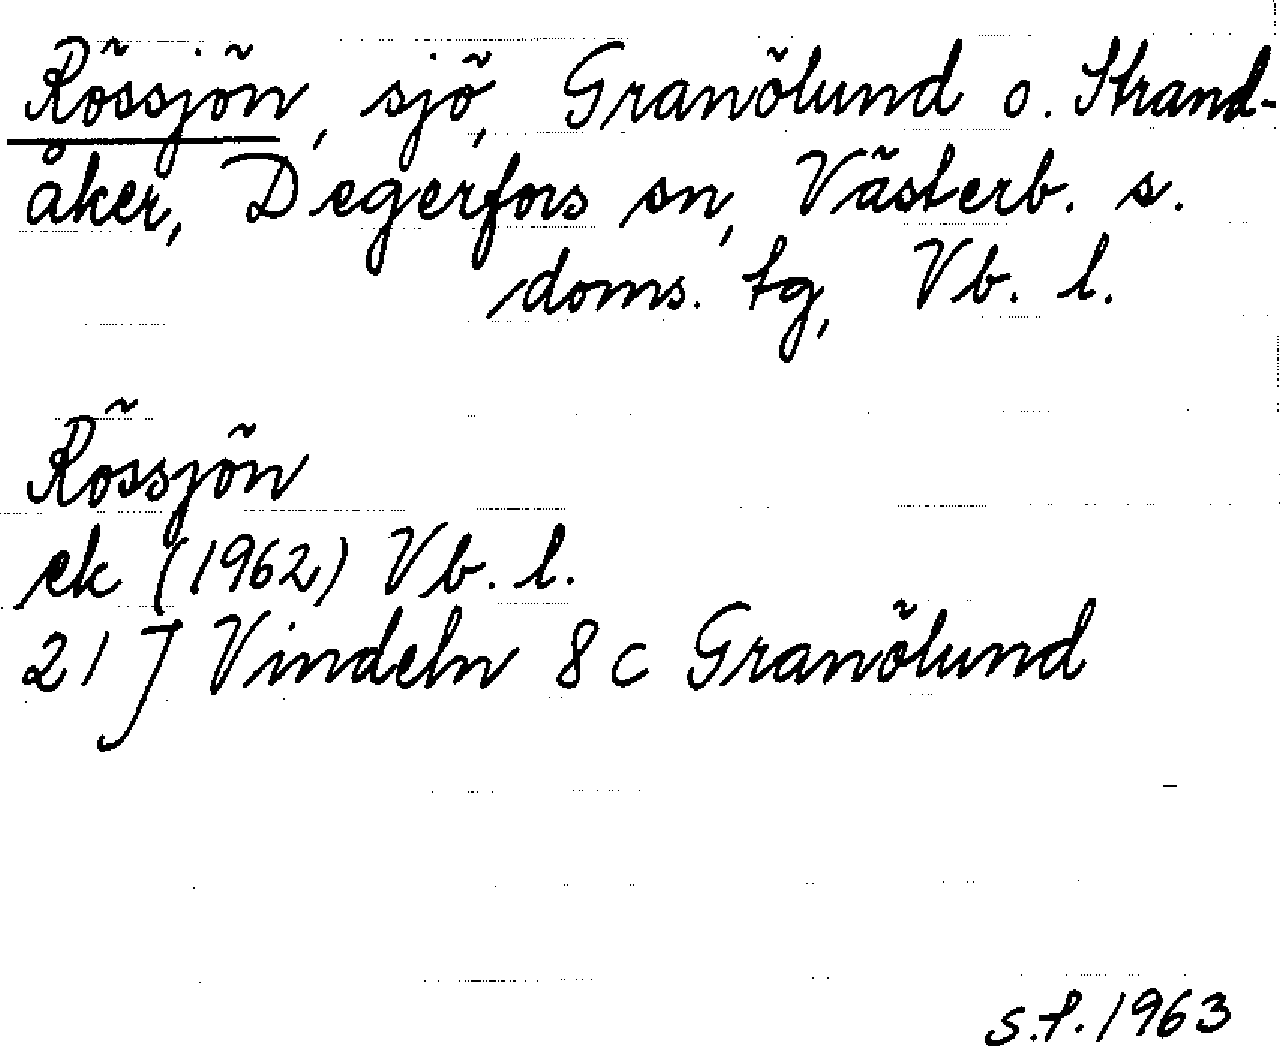 Rössjön, sjö, Granölund o. Strand-
åker, Degerfors sn, Västerb. s.
doms. tg, Vb. l.
Rössjön
ek (1962) Vb. l.
21 J Vindeln 8 c Granölund
s.f. 1963